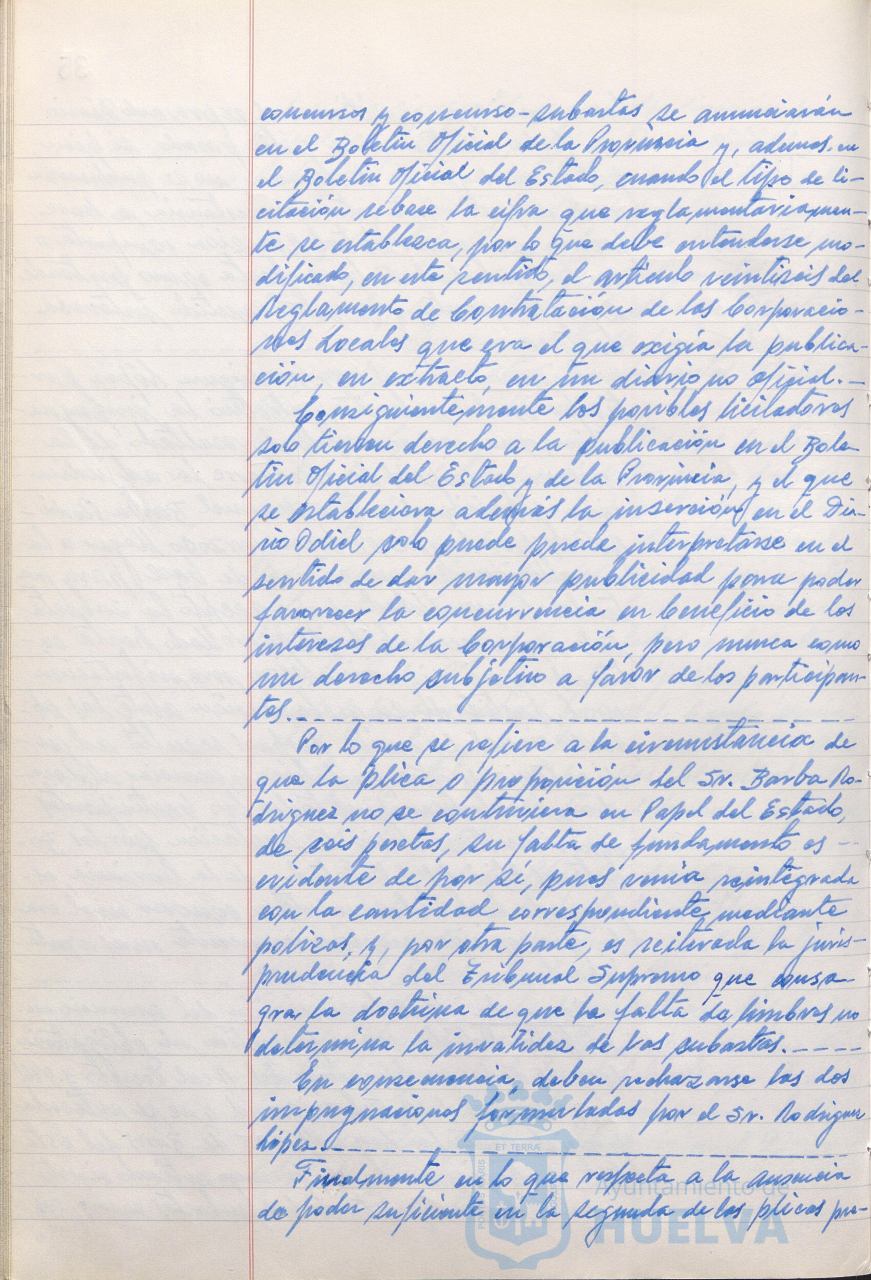 concursos y concurso-subastas se anunciarán
en el Boletín Oficial de la Provincia y, ademas en
el Boletín Oficial del Estado, cuando el tipo de li-
citación rebase la cifra que reglamentariamen-
te se establezca, por lo que debe entenderse mo-
dificado, en este sentido, el articulo veintiseis del
Reglamento de Contratación de las Corporacio-
nes Locales que era el que exigía la publica-
ción, en extracto, en un diario no oficial.-
Consiguientemente los posibles licitadores
solo tienen derecho a la publicación en el Bole-
tin Oficial del Estado y de la Provincia, y el que
se estableciera además la inserción en el Dia-
rio Odiel solo puede pueda interpretarse en el
sentido de dar mayor publicidad para poder
favorecer la concurrencia en beneficio de los
intereses de la Corporación, pero nunca como
un derecho subjetivo a favor de los participan-
tes.
Por lo que se refiere a la circunstancia de
que la plica o proposición del Sr. Barba Ro-
driguez no se contuviera en Papel del Estado,
de seis pesetas, su falta de fundamento es --
evidente de por sí, pues venia reintegrada
con la cantidad correspondiente, mediante
polizas, y, por otra parte, es reiterada la juris-
prudencia del Tribunal Supremo que consa-
gra la doctrina de que la falta de timbres no
determina la invalidez de las subastas.----
En consecuencia, deben rechazarse las dos
impugnaciones formuladas por el Sr. Rodriguez
López.
Finalmente en lo que respecta a la ausencia
de poder suficiente en la segunda de las plicas pre-
ET TERRAE
Ayuntamiento de
HUELVA